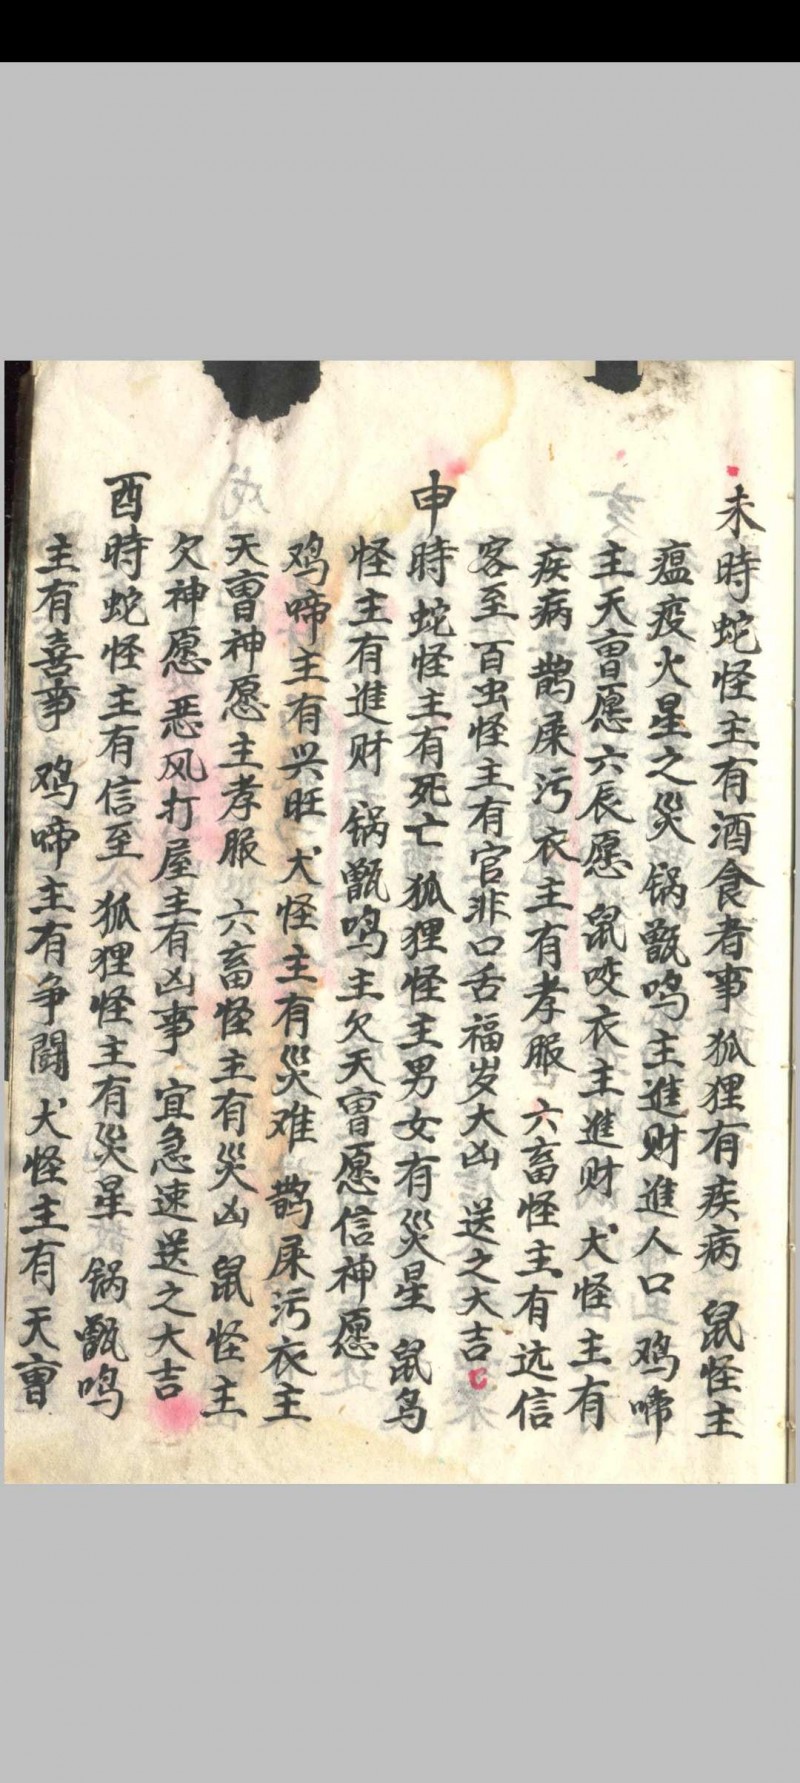 未時蛇怪主有酒食者事 狐狸有疾病 鼠怪主
瘟疫火星之災 锅甑鸣主進财進人口 鸡啼
主天曺愿六辰愿 鼠咬衣主進财 犬怪主有
疾病 鹊屎污衣主有孝服 六畜怪主有远信
客至 百虫怪主有官非口舌福岁大凶 送之大吉
申時蛇怪主有死亡 狐狸怪主男女有災星 鼠鸟
怪主有進财 锅甑鸣主欠天曺愿信神愿
鸡啼主有兴旺 犬怪主有災难 鹊屎污衣主
天曺神愿主孝服 六畜怪主有災凶 鼠怪主
欠神愿 恶风打屋主有凶事 宜急速送之大吉
酉時蛇怪主有信至 狐狸怪主有災星 锅甑鸣
主有喜事 鸡啼主有争闘 犬怪主有天曺